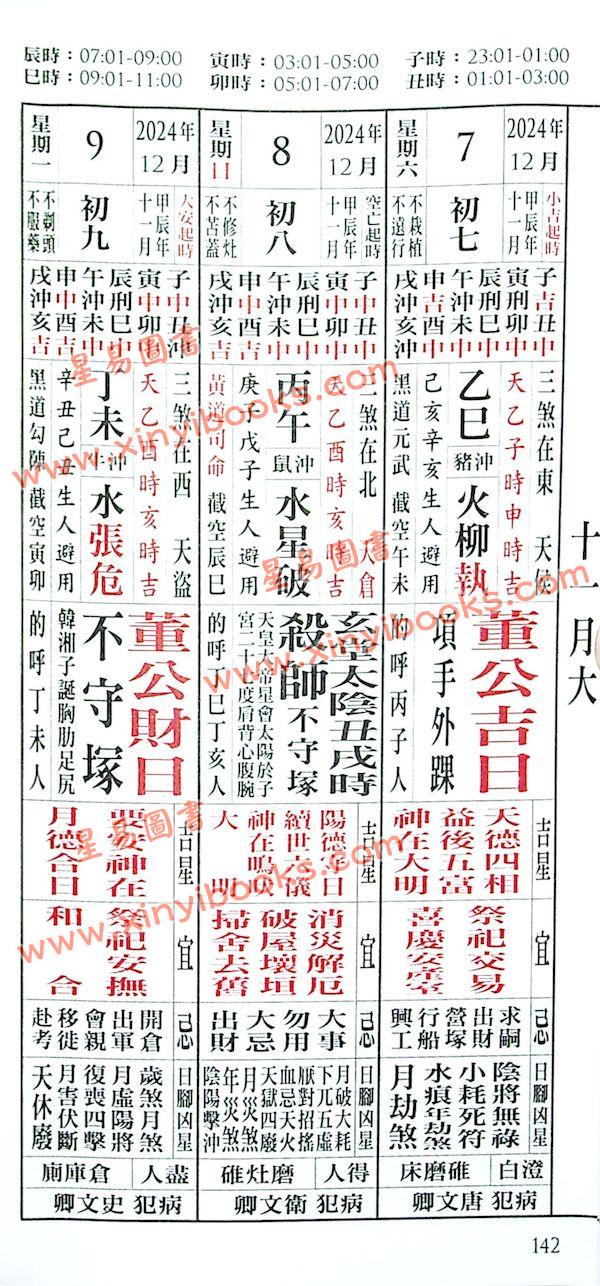 子時：23:01-01:00
丑時：01:01-03:00
寅時：03:01-05:00
卯時：05:01-07:00
辰時：07:01-09:00
巳時：09:01-11:00
十一月大
2024年
12月
7
星期六
小吉起時
甲辰年
十一月
初七
不栽植
不遠行
子吉丑中
寅刑卯中
辰刑巳中
午沖未中
申吉酉吉
戌沖亥沖
三煞在東
天乙子時申時吉
乙巳
沖豬
火柳執
己亥辛亥生人避用
黑道元武
截空午未
董公吉日
項手外踝
的呼丙子人
吉星
天德四相
益後五富
神在大明
宜
祭祀交易
喜慶安床
忌
求嗣
出財
營塚
行船
興工
日腳凶星
陰將無祿
小耗死符
水痕年劫煞
月劫煞
澄白
碓磨床
病犯唐文卿
2024年
12月
8
星期日
空亡起時
甲辰年
十一月
初八
不修灶
不苫蓋
子中丑中
寅中卯中
辰刑巳中
午沖未中
申中酉吉
戌沖亥吉
三煞在北
人倉
天乙酉時亥時吉
丙午
沖鼠
水星破
庚子戊子生人避用
黃道司命
截空辰巳
玄空太陰丑戌時
殺師
不守塚
天皇大帝星會太陽於子
宮二十六度肩背心腹腕
的呼丁巳丁亥人
吉星
陽德年日
續世六儀
神在鳴吠
大明
宜
消災解厄
破屋壞垣
掃舍去舊
忌
大事
勿用
大忌
出財
日腳凶星
月破大耗
下兀五虛
厭對招搖
血忌天火
天獄四廢
月災煞
年災煞
陰陽擊沖
得人
磨灶碓
病犯衛文卿
2024年
12月
9
星期一
大安起時
甲辰年
十一月
初九
不剃頭
不服藥
子中丑沖
寅中卯中
辰刑巳中
午沖未中
申中酉吉
戌沖亥吉
三煞在西
天盜
天乙酉時亥時吉
丁未
沖牛
水張危
辛丑己丑生人避用
黑道勾陳
截空寅卯
董公財日
不守塚
韓湘子誕胸肋足尻
的呼丁未人
吉星
要安神在
月德合日
宜
祭祀安撫
和合
忌
開倉
出軍
會親
移徙
赴考
日腳凶星
歲煞月煞
月虛陽將
復喪四擊
月害伏斷
天休廢
盡人
倉庫廁
病犯史文卿
142
星易圖書
www.xinyibooks.com
星易圖書
www.xinyibooks.com
星易圖書
www.xinyibooks.com
星易圖書
www.xinyibooks.com